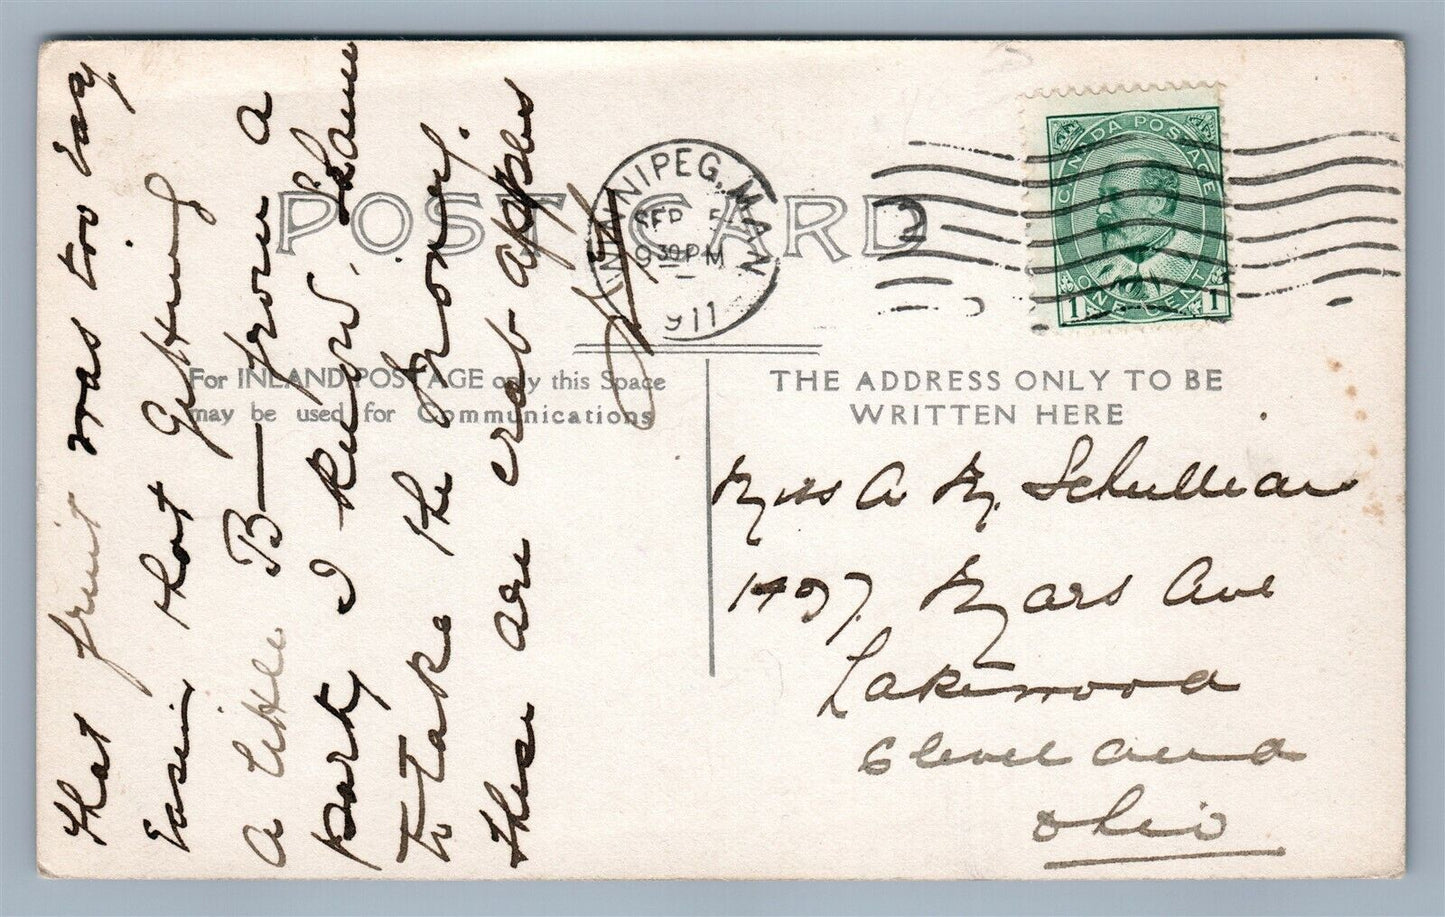 POST CARD
WINNIPEG, MAN
SEP 5
930PM
1911
CANADA POSTAGE
1 ONE CENT 1
For INLAND POSTAGE only this Space
may be used for Communications
THE ADDRESS ONLY TO BE
WRITTEN HERE
That fruit was too easy
Easier that Getting
a little B— from a
party I know. Shame
to take the money.
these are crab apples
Miss A M. Schullian
1497 Mars Ave
Lakewood
Cleveland
Ohio